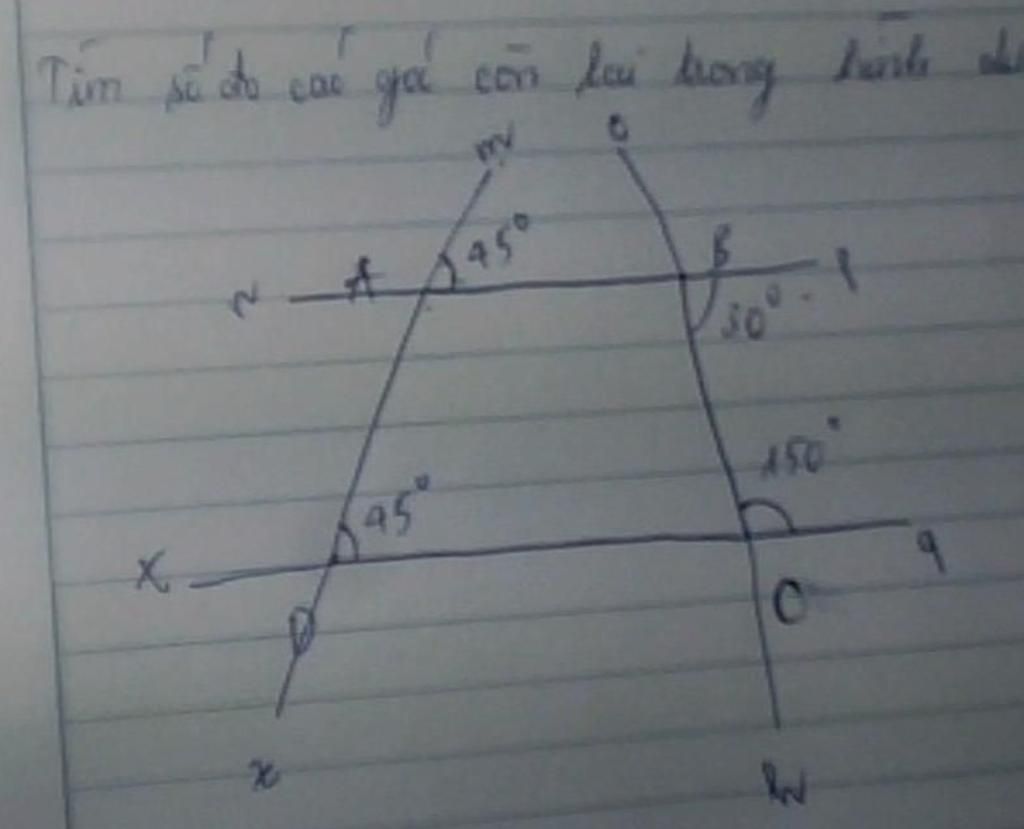 Tìm số đo các gó còn lại trong hình
m O
45°
N A B
30°
150°
45°
X q
D C
x